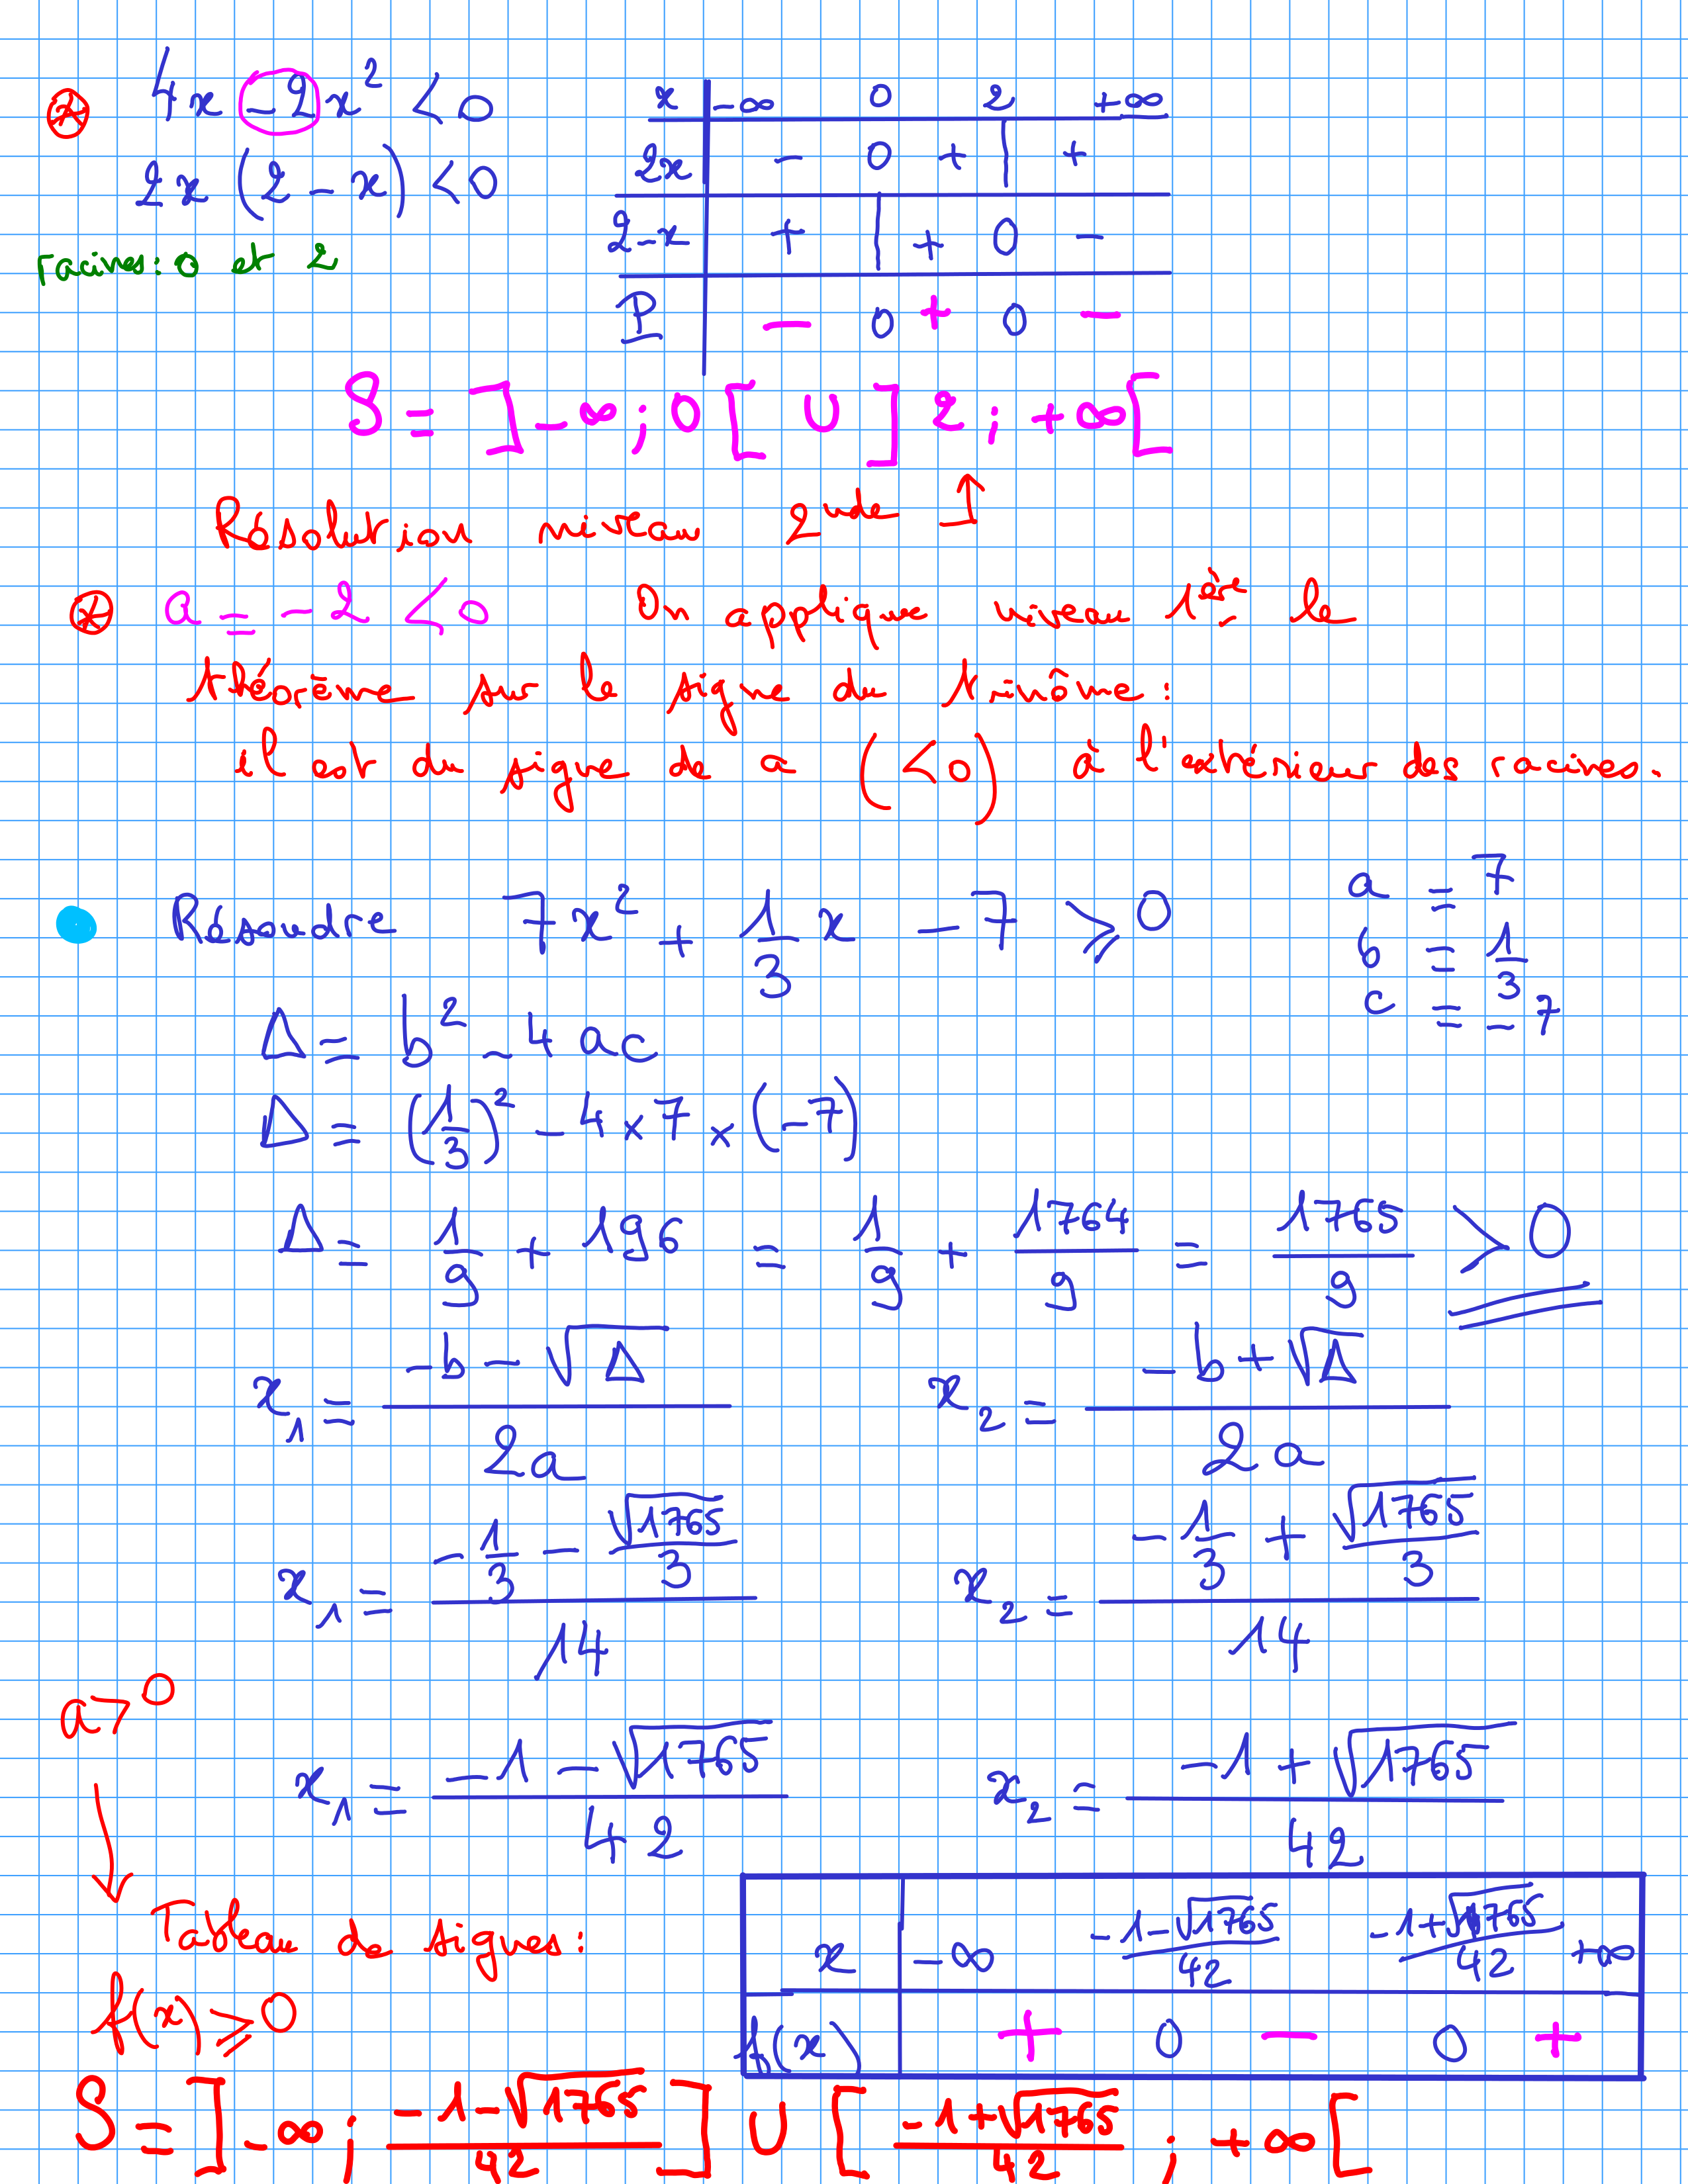 4x - 2x² < 0
2x (2 - x) < 0
racines : 0 et 2
x | -∞ 0 2 +∞
2x | - 0 + | +
2-x | + | + 0 -
P | - 0 + 0 -
S = ]-∞ ; 0[ ∪ ]2 ; +∞[
Résolution niveau 2nde ↑
a = -2 < 0 On applique niveau 1ère le
théorème sur le signe du trinôme :
il est du signe de a (<0) à l'extérieur des racines.
Résoudre 7x² + 1/3 x - 7 ⩾ 0
a = 7
b = 1/3
c = -7
Δ = b² - 4ac
Δ = (1/3)² - 4 × 7 × (-7)
Δ = 1/9 + 196 = 1/9 + 1764/9 = 1765/9 > 0
x₁ = (-b - √Δ)/2a x₂ = (-b + √Δ)/2a
x₁ = (-1/3 - √1765/3)/14 x₂ = (-1/3 + √1765/3)/14
a > 0
x₁ = (-1 - √1765)/42 x₂ = (-1 + √1765)/42
Tableau de signes :
f(x) ⩾ 0
x | -∞ (-1-√1765)/42 (-1+√1765)/42 +∞
f(x) | + 0 - 0 +
S = ]-∞ ; (-1-√1765)/42] ∪ [(-1+√1765)/42 ; +∞[